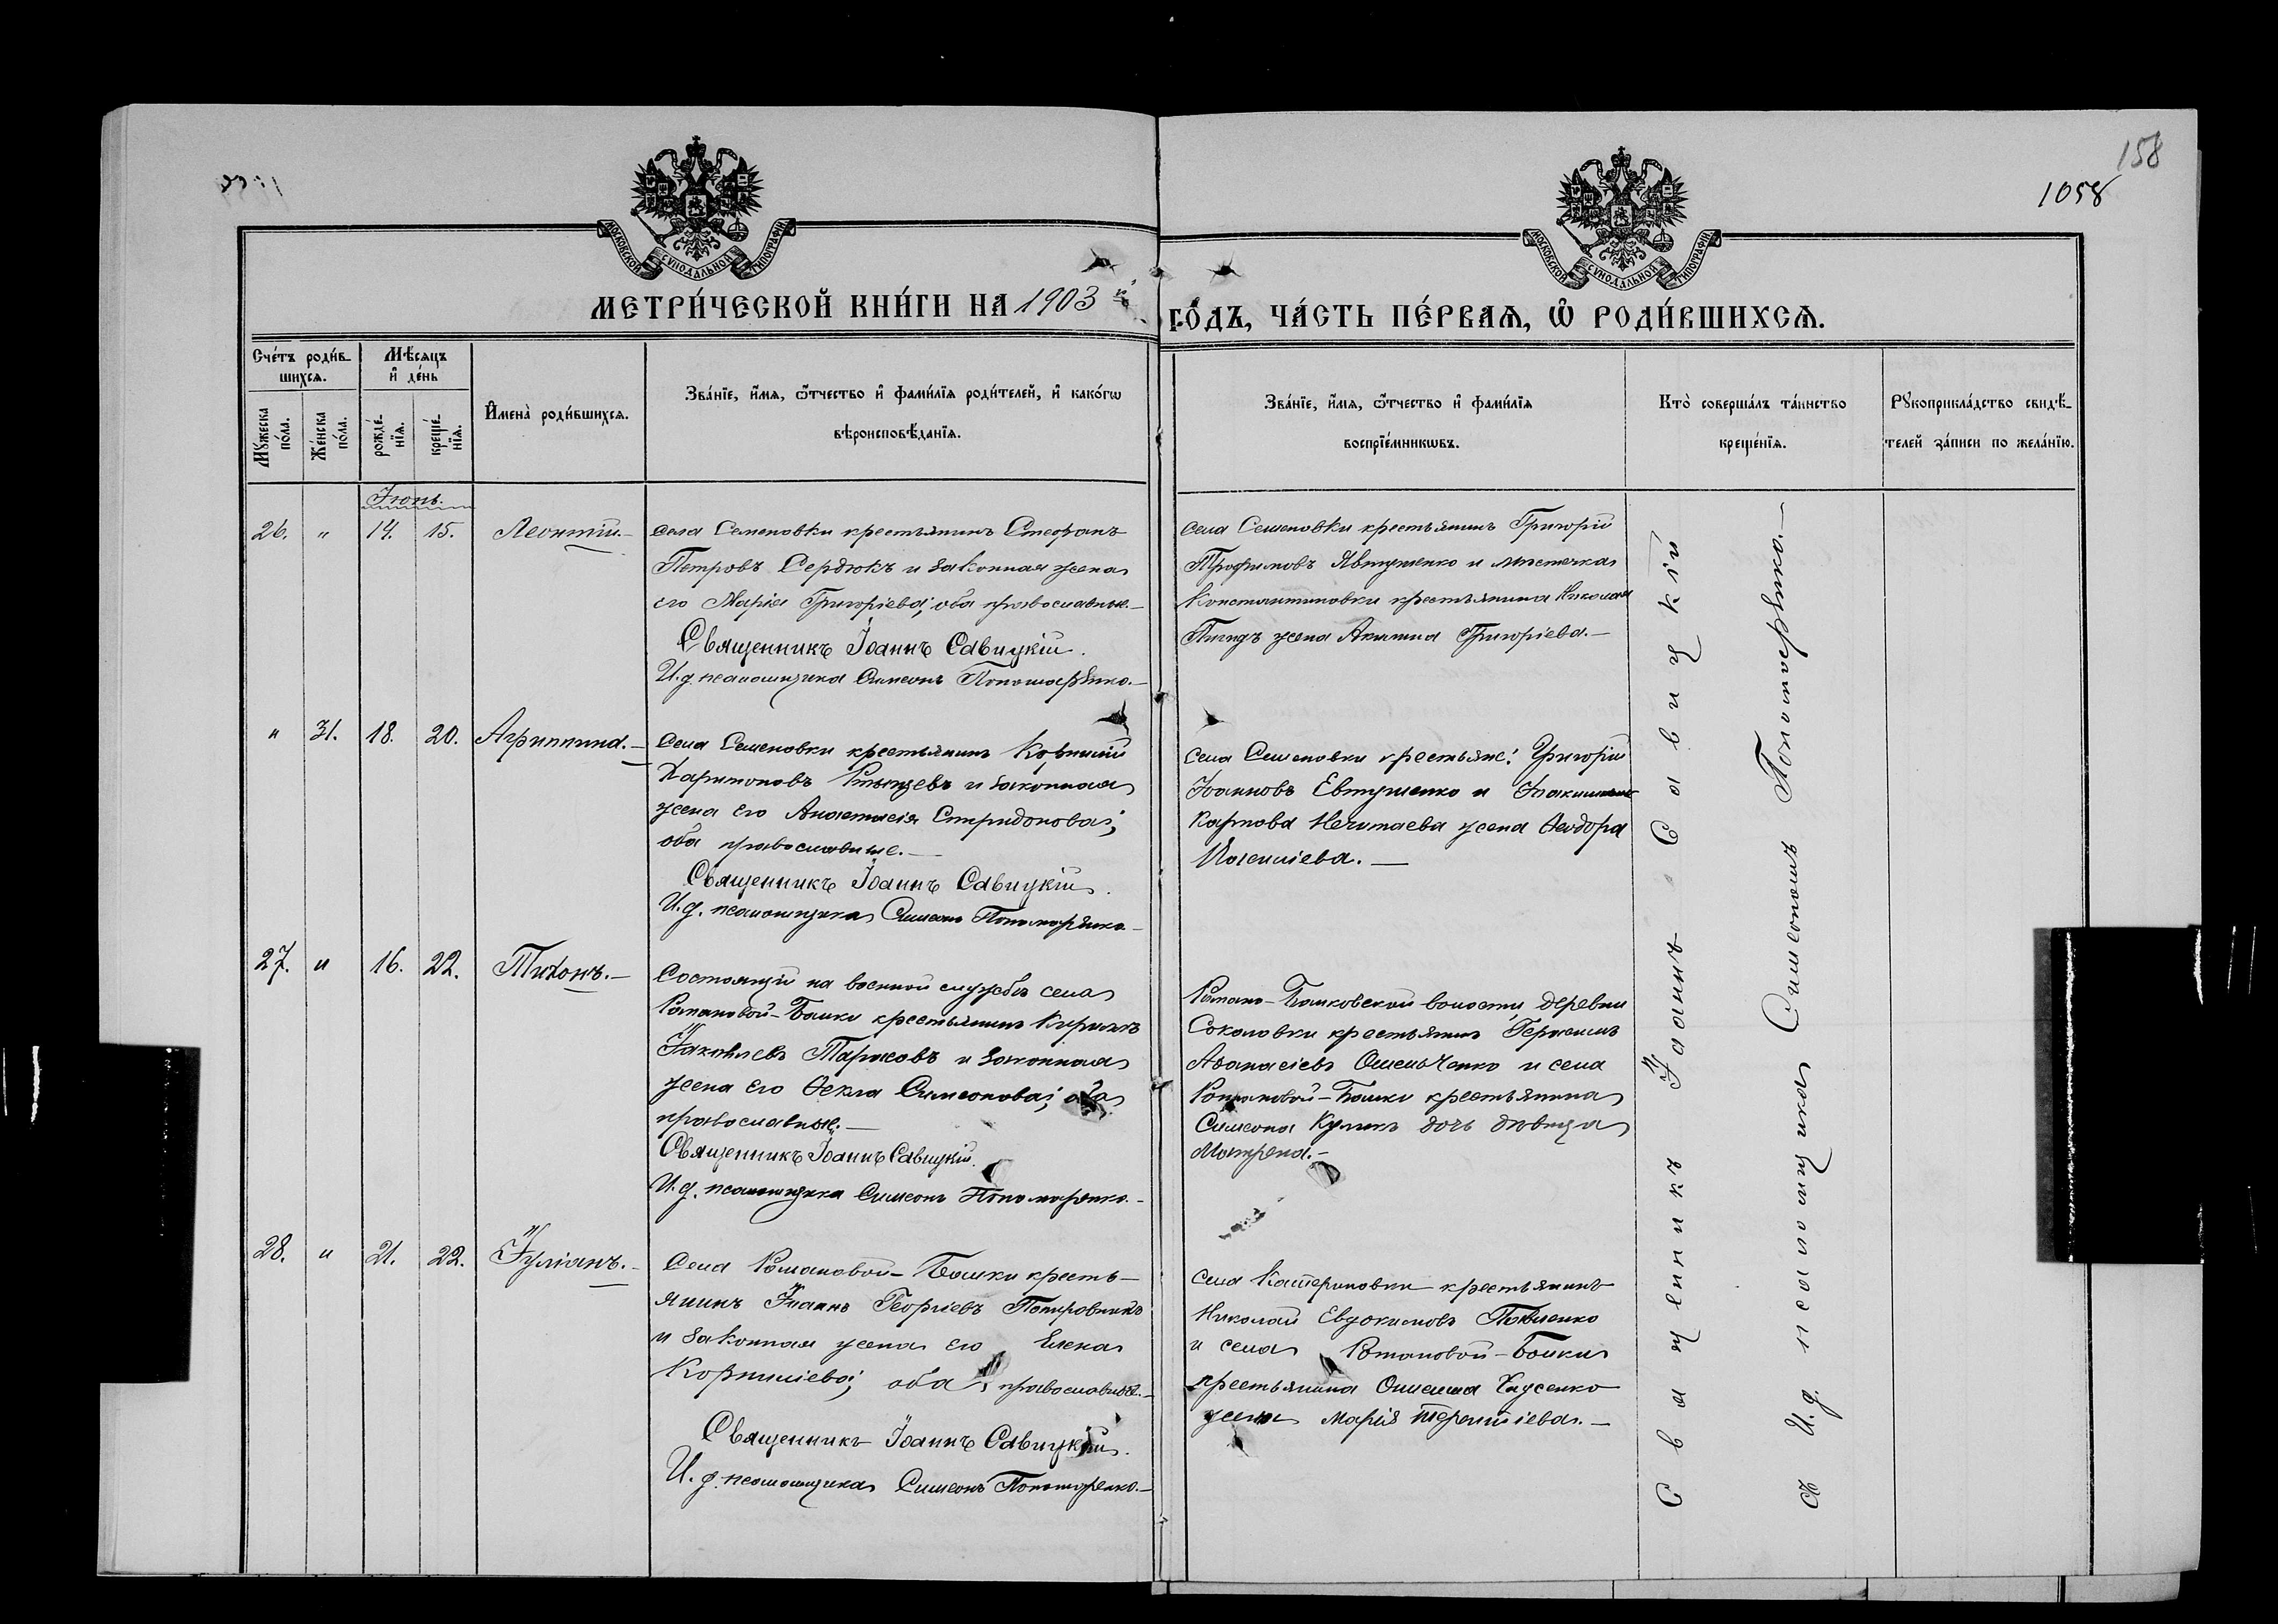 158
1058
МОСКОВСКОЙ СУНОДАЛЬНОЙ ТИПОГРАФІИ
МОСКОВСКОЙ СУНОДАЛЬНОЙ ТИПОГРАФІИ
МЕТРИ́ЧЕСКОЙ КНИ́ГИ НА 1903 й
ГО́ДЪ, ЧА́СТЬ ПЕ́РВАѦ, Ѡ҆ РОДИ́ВШИХСѦ.
Сче́тъ роди́в-
шихсѧ.
Мѣ́сяцъ
и҆ де́нь
Мꙋ́жеска по́ла.
Же́нска по́ла.
рожде́-
нїѧ.
креще́-
нїѧ.
И҆мена̀ роди́вшихсѧ.
Зва́нїе, и҆́мѧ, ѻ҆́тчество и҆ фами́лїѧ роди́телей, и҆ како́гѡ
вѣроисповѣ́данїѧ.
Зва́нїе, и҆́мѧ, ѻ҆́тчество и҆ фами́лїѧ
воспрїе́мникѡвъ.
Кто̀ соверша́лъ та́инство
креще́нїѧ.
Рꙋкоприкла́дство свидѣ́-
телей за́писи по жела́нїю.
Іюнь.
26. " 14. 15. Леонтій.-
села Семеновки крестьянинъ Стефанъ
Петровъ Сердюкъ и законная жена
его Марія Григоріева; оба православные.-
Священникъ Іоаннъ Савицкій.
И.д. псаломщика Симеонъ Пономаренко.-
села Семеновки крестьянинъ Григорій
Трофимовъ Явтушенко и мѣстечка
Константиновки крестьянина Николая
жена Григоріева.-
" 31. 18. 20. Агриппина.-
Села Семеновки крестьянинъ Корнилій
Харитоновъ и законная
жена его Анастасія Спиридонова;
оба православные.-
Священникъ Іоаннъ Савицкій.
И.д. псаломщика Симеонъ Пономаренко.-
села Семеновки крестьяне: Григорій
Іоанновъ Евтушенко и
Карпова Нечитаева жена Ѳеодора
27. " 16. 22. Тихонъ.-
Состоящій на военной службѣ села
Романовой-Балки крестьянинъ Кириллъ
Іаковлевъ Тарасовъ и законная
жена его Ѳекла Симеонова; оба
православные.-
Священникъ Іоаннъ Савицкій.
И.д. псаломщика Симеонъ Пономаренко.-
Романо-Балковской волости, деревни
Соколовки крестьянинъ Герасимъ
Аѳанасіевъ Омельченко и села
Романовой-Балки крестьянина
Симеона Куликъ дочь дѣвица
Матрена.-
28. " 21. 22. Іуліанъ.-
Села Романовой-Балки кресть-
янинъ Іоаннъ Георгіевъ
и законная жена его Елена
Корниліева; оба православные.-
Священникъ Іоаннъ Савицкій.
И.д. псаломщика Симеонъ Пономаренко.-
села Катериновки крестьянинъ
Николай Евдокимовъ Павленко
и села Романовой-Балки
крестьянина
жена Марія Терентіева.-
Священникъ Іоаннъ Савицкій
съ И.д. псаломщика Симеономъ Пономаренко.-